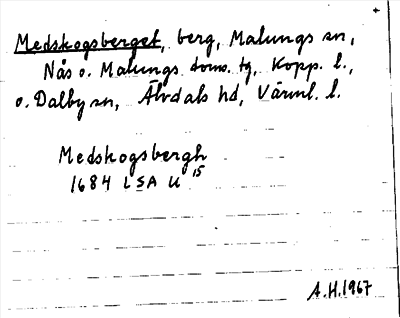 Medskogsberget, berg, Malungs sn,
Nås o. Malungs doms. tg, Kopp. l.,
o. Dalby sn, Älvdals hd, Värml. l.
Medskogsbergh
1684 LSA U 15
A.H. 1967